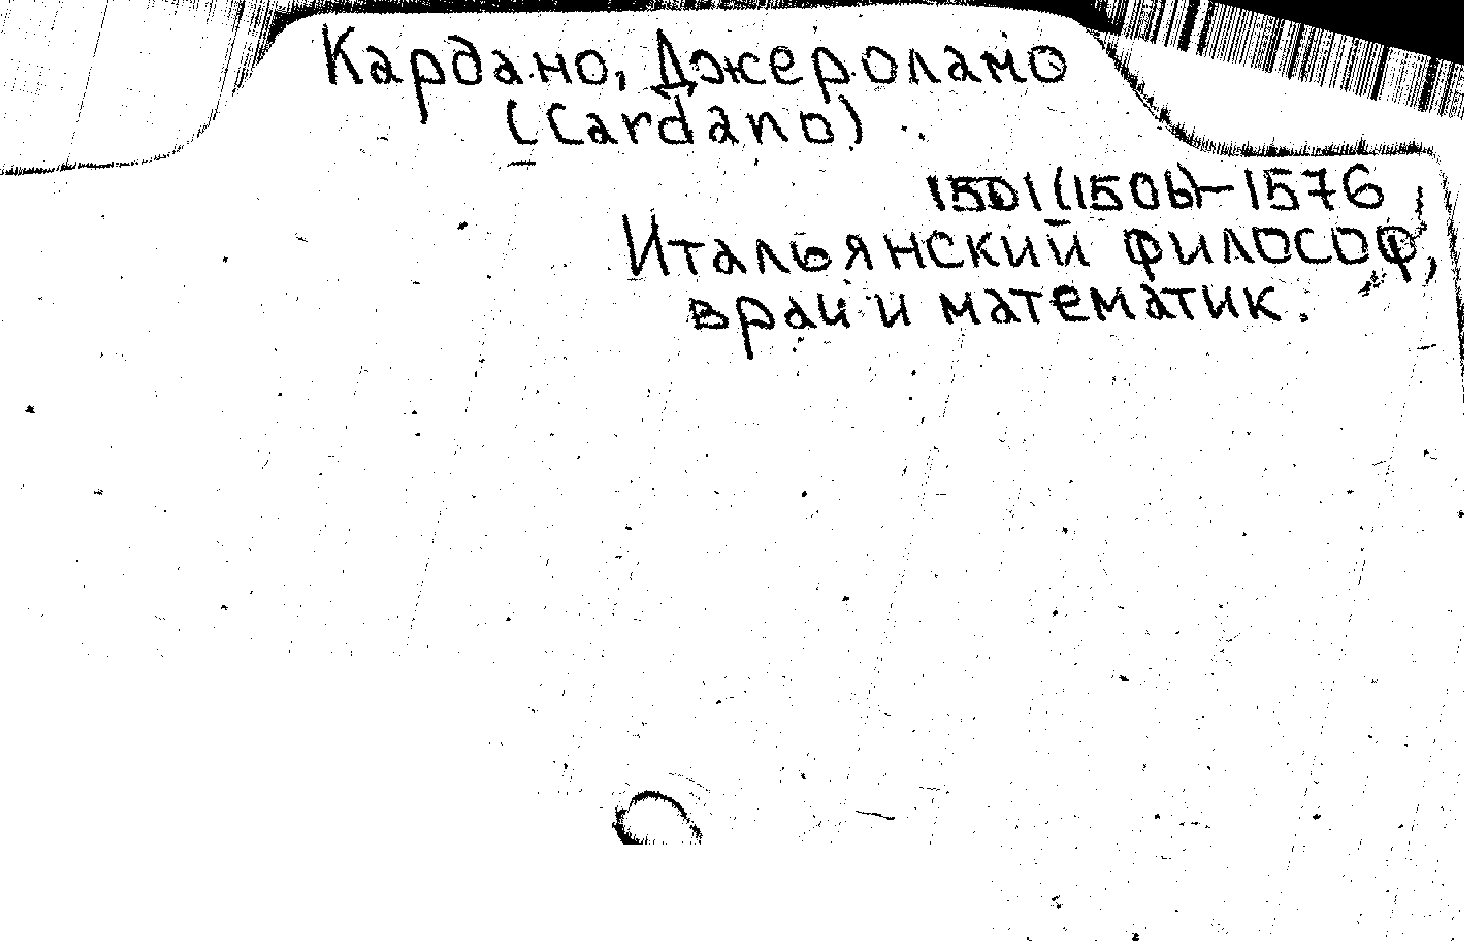 Кардано, Джероламо
(Cardano)
1501(1506)-1576
Итальянский философ,
врач и математик.